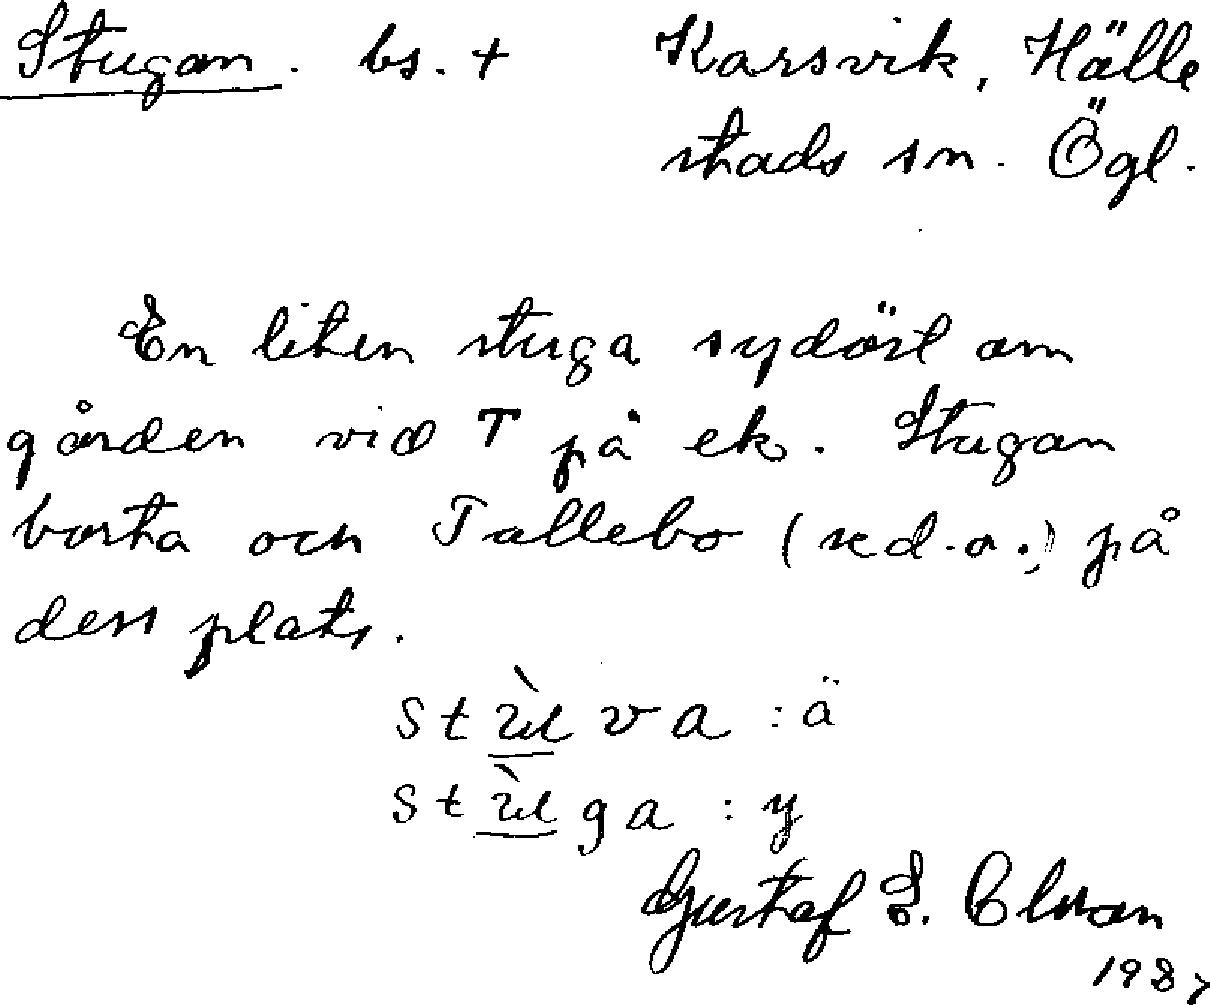 Stugan. bs. + Karsvik, Hälle
stads sn. Ögl.
En liten stuga sydöst om
gården vid T på ek. Stugan
borta och Tallebo (se d.o.) på
dess plats.
Gustaf E. Clason